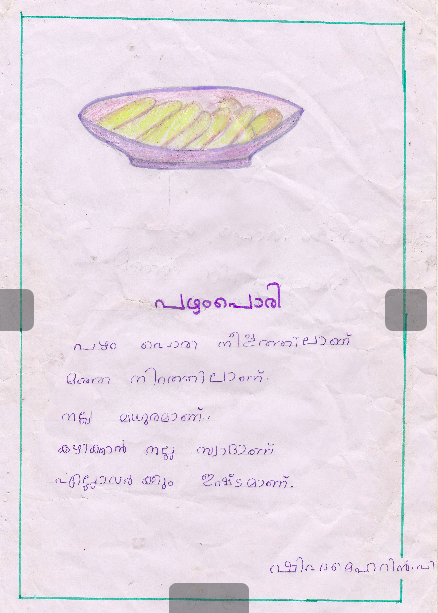 പഴംപൊരി
പഴം പൊരി നീളത്തിലാണ്
മഞ്ഞ നിറത്തിലാണ്.
നല്ല മധുരമാണ്.
കഴിക്കാൻ നല്ല സ്വാദാണ്
എല്ലാവർക്കും ഇഷ്ടമാണ്.